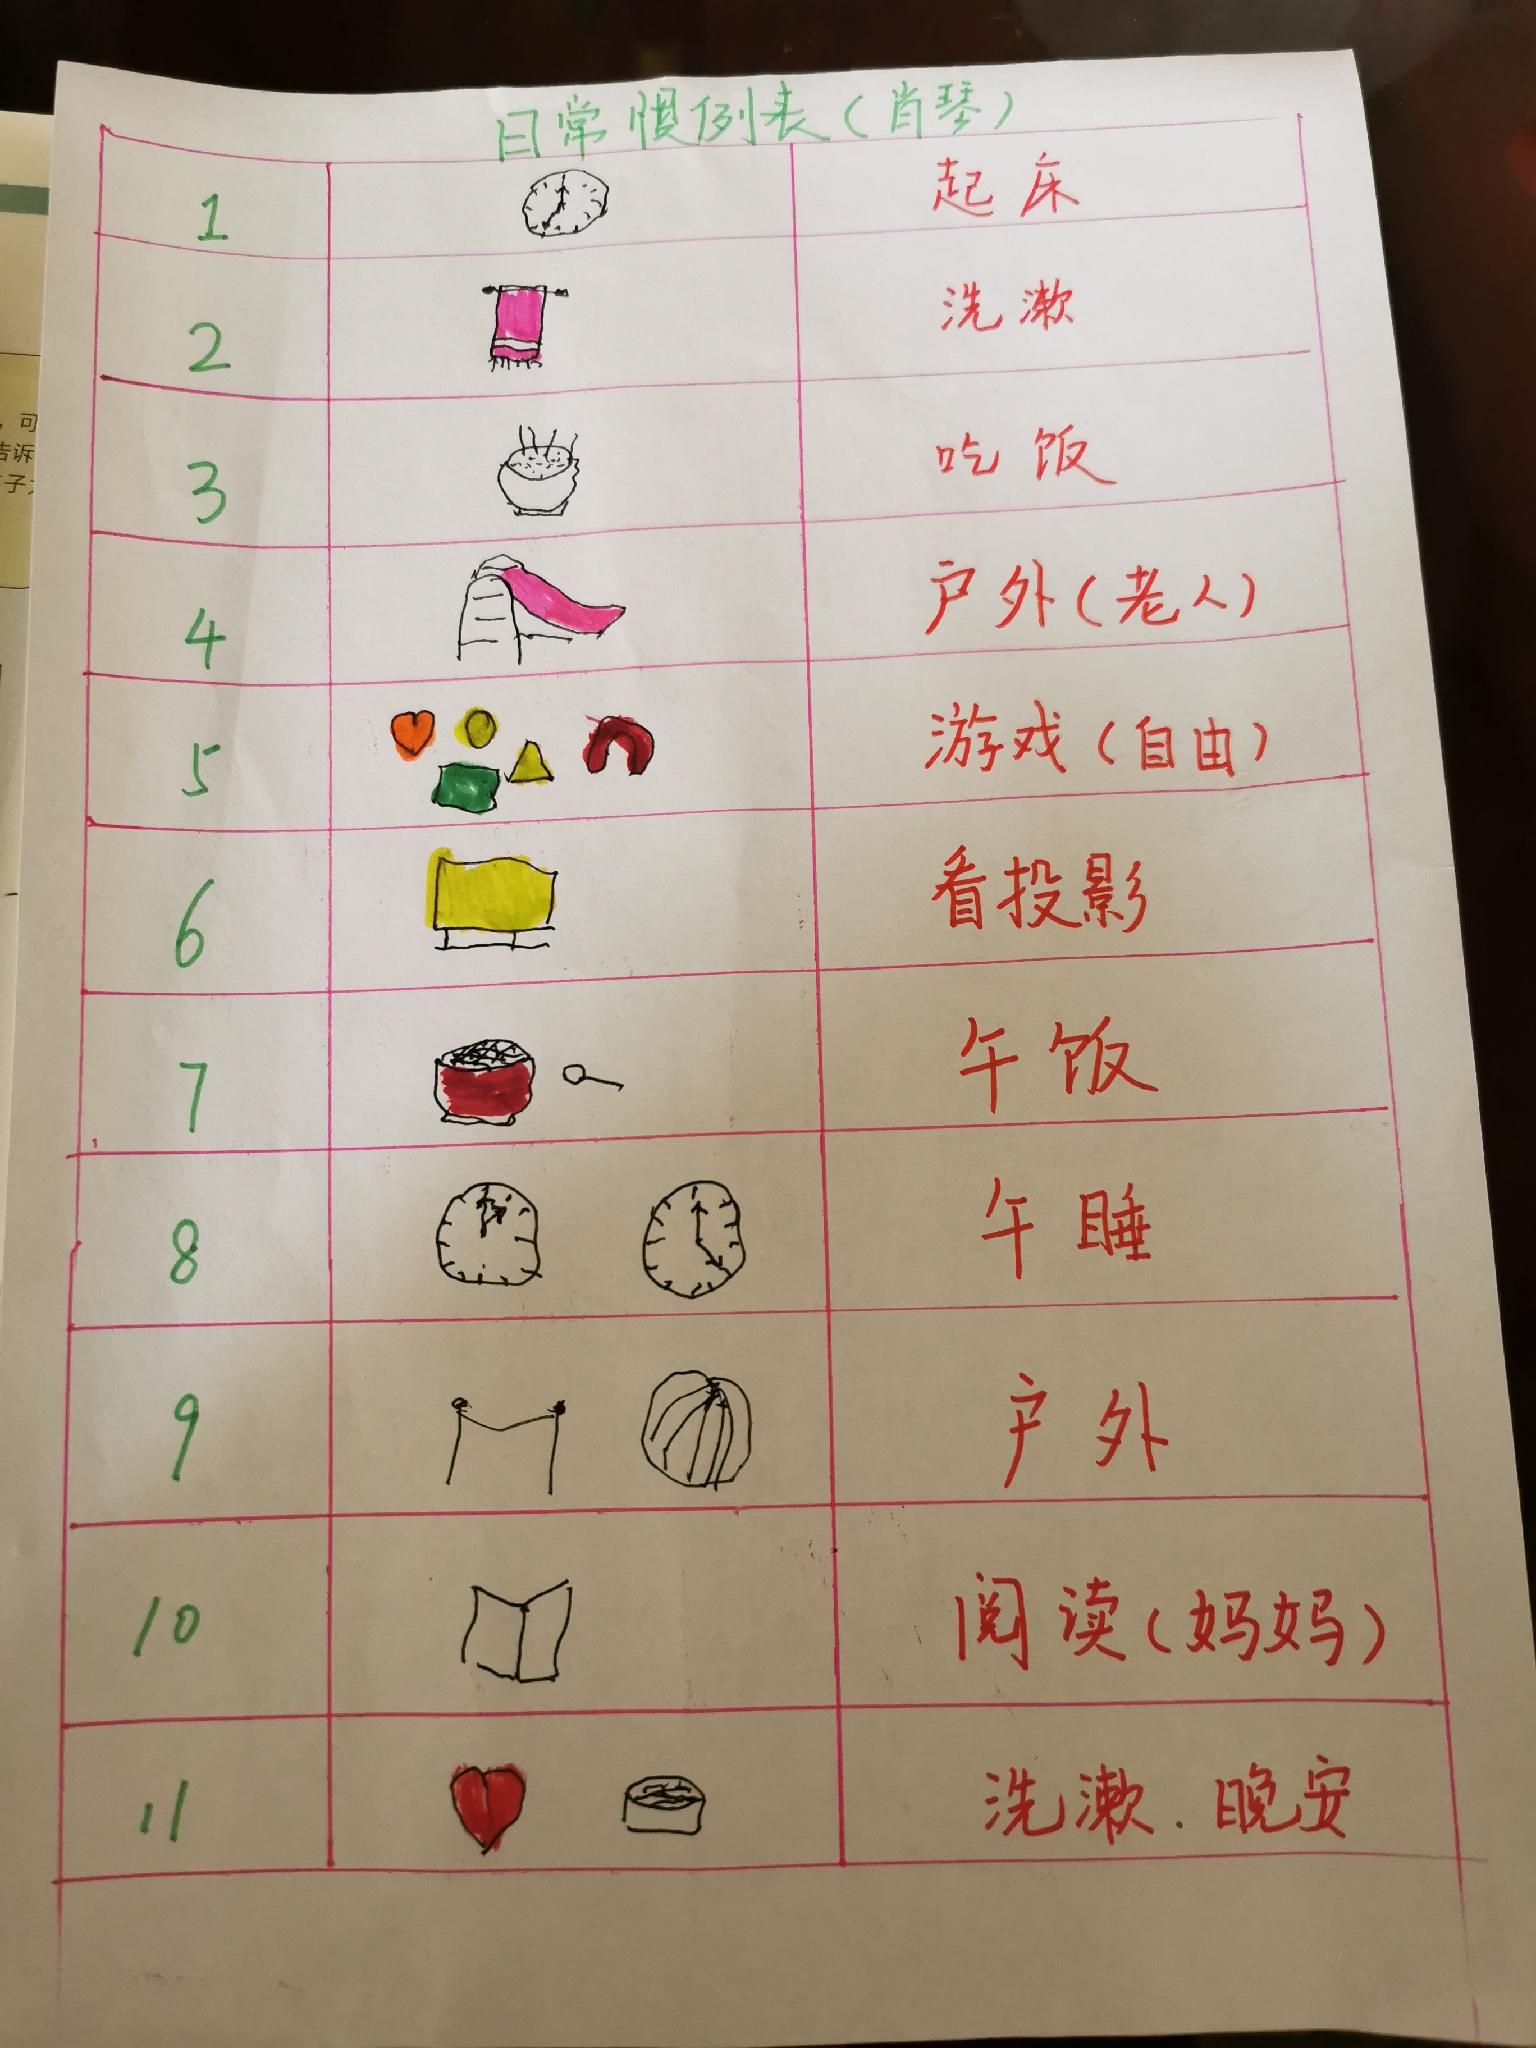 日常惯例表（肖琴）
1 起床
2 洗漱
3 吃饭
4 户外（老人）
5 游戏（自由）
6 看投影
7 午饭
8 午睡
9 户外
10 阅读（妈妈）
11 洗漱．晚安
，可
告诉